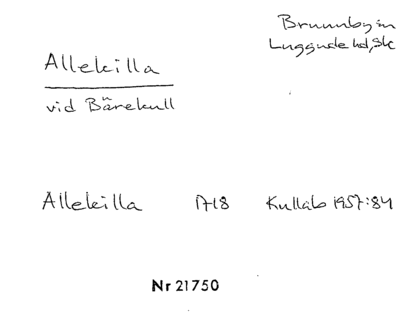 Brunnby sn
Luggude hd, Sk
Allekilla
vid Bärekull
Allekilla 1718 Kullab 1957:84
Nr 21750